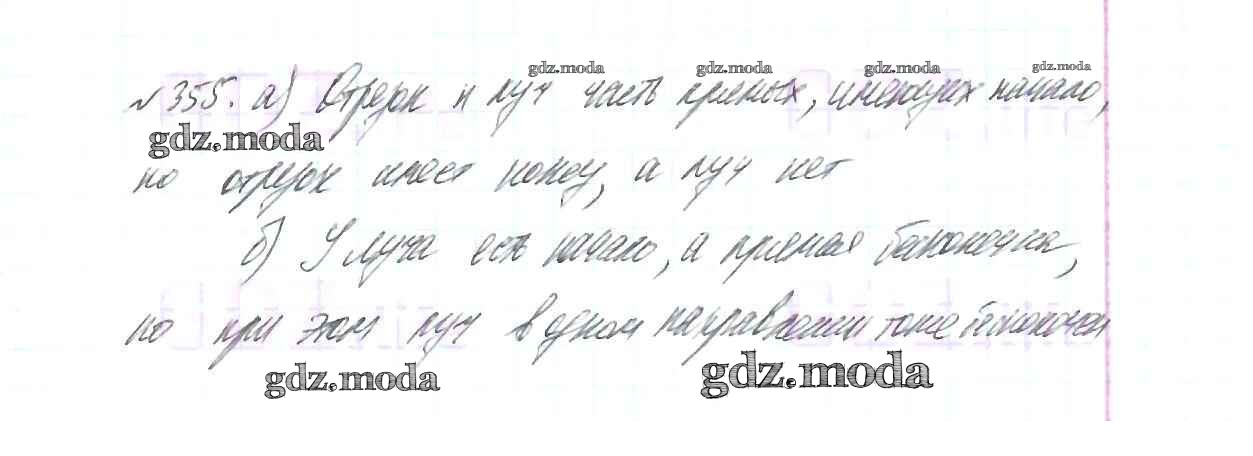 gdz.moda gdz.moda gdz.moda
№355. а) Отрезок и луч часть прямых, имеющих начало,
gdz.moda
но отрезок имеет конец, а луч нет
б) У луча есть начало, а прямая бесконечна,
но при этом луч в одном направлении тоже бесконечен
gdz.moda gdz.moda